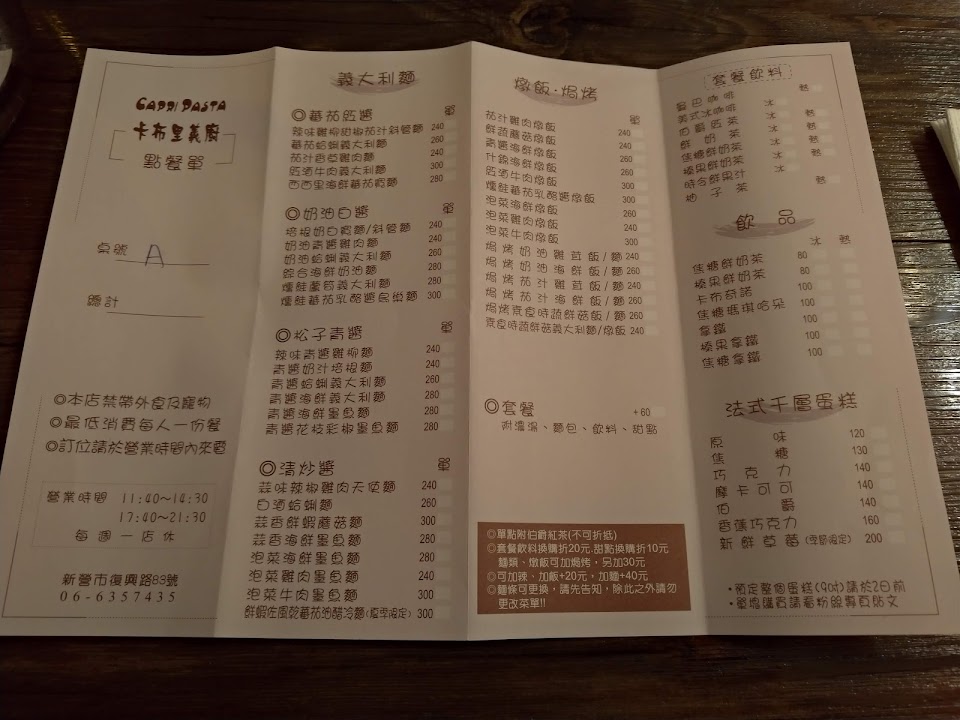 CAPRI PASTA
卡布里義廚
點餐單
桌號 A
總計
◎本店禁帶外食及寵物
◎最低消費每人一份餐
◎訂位請於營業時間內來電
營業時間 11:40~14:30
17:40~21:30
每週一店休
新營市復興路83號
06-6357435
義大利麵
◎蕃茄紅醬 單
辣味雞柳甜椒茄汁斜管麵 240
蕃茄蛤蜊義大利麵 260
茄汁香草雞肉麵 240
紅酒牛肉義大利麵 300
西西里海鮮蕃茄寬麵 280
◎奶油白醬 單
培根奶白寬麵/斜管麵 240
奶油青醬雞肉麵 240
奶油蛤蜊義大利麵 260
綜合海鮮奶油麵 280
燻鮭蘆筍義大利麵 280
燻鮭蕃茄乳酪醬鳥巢麵 300
◎松子青醬 單
辣味青醬雞柳麵 240
青醬奶汁培根麵 240
青醬蛤蜊義大利麵 260
青醬海鮮義大利麵 280
青醬海鮮墨魚麵 280
青醬花枝彩椒墨魚麵 280
◎清炒醬 單
蒜味辣椒雞肉天使麵 240
白酒蛤蜊麵 260
蒜香鮮蝦蘑菇麵 300
蒜香海鮮墨魚麵 280
泡菜海鮮墨魚麵 280
泡菜雞肉墨魚麵 240
泡菜牛肉墨魚麵 300
鮮蝦佐風乾蕃茄油醋冷麵(夏季限定) 300
燉飯·焗烤
單
茄汁雞肉燉飯 240
鮮蔬蘑菇燉飯 240
青醬海鮮燉飯 260
什錦海鮮燉飯 260
紅酒牛肉燉飯 300
燻鮭蕃茄乳酪醬燉飯 300
泡菜海鮮燉飯 260
泡菜雞肉燉飯 240
泡菜牛肉燉飯 300
焗烤奶油雞茸飯/麵 240
焗烤奶油海鮮飯/麵 260
焗烤茄汁雞茸飯/麵 240
焗烤茄汁海鮮飯/麵 260
焗烤素食時蔬鮮菇飯/麵 260
素食時蔬鮮菇義大利麵/燉飯 240
◎套餐 +60
附濃湯、麵包、飲料、甜點
◎單點附伯爵紅茶(不可折抵)
◎套餐飲料換購折20元,甜點換購折10元
麵類、燉飯可加焗烤,另加30元
◎可加辣、加飯+20元、加麵+40元
◎麵條可更換,請先告知,除此之外請勿
更改菜單!!
套餐飲料
曼巴咖啡 熱
美式冰咖啡 冰
伯爵紅茶 冰 熱
鮮奶茶 冰 熱
焦糖鮮奶茶 冰 熱
榛果鮮奶茶 冰 熱
時令鮮果汁 冰
柚子茶 熱
飲品
冰 熱
焦糖鮮奶茶 80
榛果鮮奶茶 80
卡布奇諾 100
焦糖瑪琪哈朵 100
拿鐵 100
榛果拿鐵 100
焦糖拿鐵 100
法式千層蛋糕
原味 120
焦糖 130
巧克力 140
摩卡可可 140
伯爵 140
香蕉巧克力 160
新鮮草莓(季節限定) 200
·預定整個蛋糕(9吋)請於2日前
·單塊購買請看粉絲專頁貼文